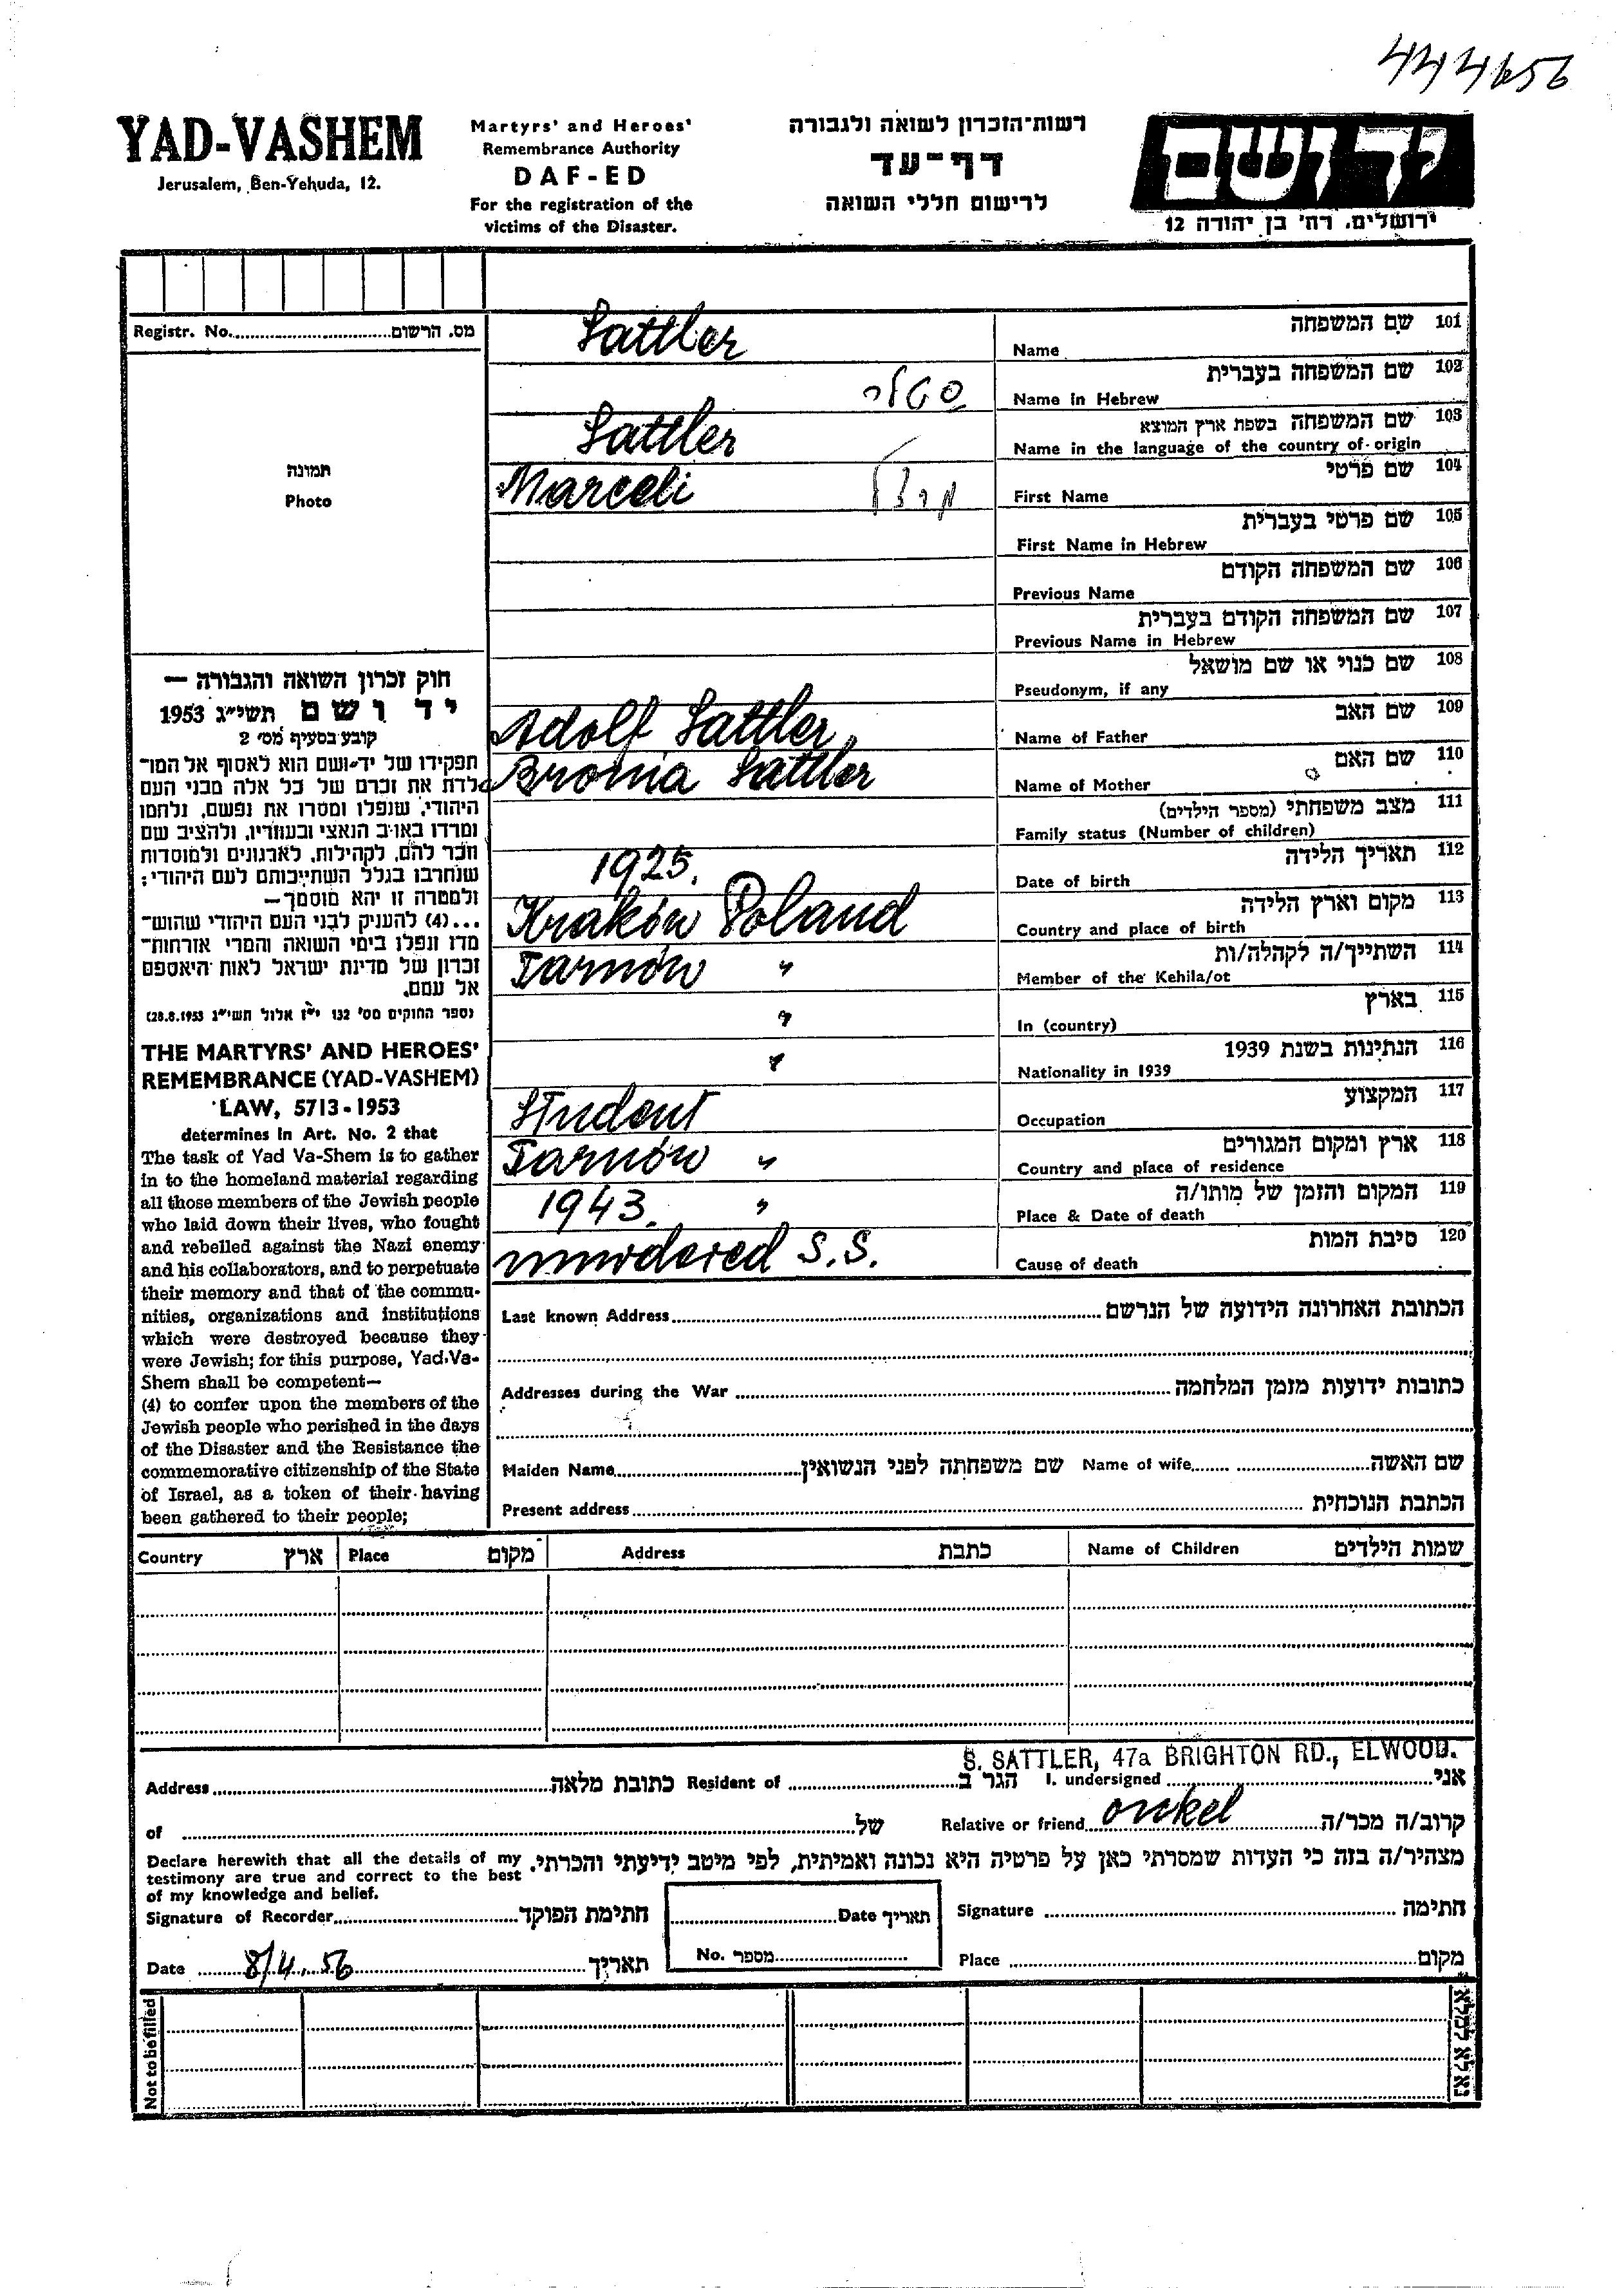 444656
YAD-VASHEM
Jerusalem, Ben-Yehuda, 12.
Martyrs' and Heroes'
Remembrance Authority
DAF-ED
For the registration of the
victims of the Disaster.
רשות-הזכרון לשואה ולגבורה
דף-עד
לרישום חללי השואה
יד ושם
ירושלים, רח' בן יהודה 12
Registr. No. מס. הרשום
תמונה
Photo
חוק זכרון השואה והגבורה —
יד ושם תשי״ג 1953
קובע בסעיף מס׳ 2
תפקידו של יד-ושם הוא לאסוף אל המו־
לדת את זכרם של כל אלה מבני העם
היהודי, שנפלו ומסרו את נפשם, נלחמו
ומרדו באויב הנאצי ובעוזריו, ולהציב שם
וזכר להם, לקהילות, לארגונים ולמוסדות
שנחרבו בגלל השתייכותם לעם היהודי;
ולמטרה זו יהא מוסמך—
...(4) להעניק לבני העם היהודי שהוש־
מדו ונפלו בימי השואה והמרי אזרחות־
זכרון של מדינת ישראל לאות היאספם
אל עמם.
(ספר החוקים מס׳ 132 י״ז אלול תשי״ג 28.8.1953)
THE MARTYRS' AND HEROES'
REMEMBRANCE (YAD-VASHEM)
LAW, 5713-1953
determines in Art. No. 2 that
The task of Yad Va-Shem is to gather
in to the homeland material regarding
all those members of the Jewish people
who laid down their lives, who fought
and rebelled against the Nazi enemy
and his collaborators, and to perpetuate
their memory and that of the commu-
nities, organizations and institutions
which were destroyed because they
were Jewish; for this purpose, Yad-Va-
Shem shall be competent—
(4) to confer upon the members of the
Jewish people who perished in the days
of the Disaster and the Resistance the
commemorative citizenship of the State
of Israel, as a token of their having
been gathered to their people;
Sattler Name שם המשפחה 101
סטלר Name in Hebrew שם המשפחה בעברית 102
Sattler Name in the language of the country of origin שם המשפחה בשפת ארץ המוצא 103
Marceli First Name שם פרטי 104
First Name in Hebrew שם פרטי בעברית 105
Previous Name שם המשפחה הקודם 106
Previous Name in Hebrew שם המשפחה הקודם בעברית 107
Pseudonym, if any שם כנוי או שם מושאל 108
Adolf Sattler Name of Father שם האב 109
Bronia Sattler Name of Mother שם האם 110
Family status (Number of children) מצב משפחתי (מספר הילדים) 111
1925. Date of birth תאריך הלידה 112
Kraków Poland Country and place of birth מקום וארץ הלידה 113
Tarnów " Member of the Kehila/ot השתייך/ה לקהלה/ות 114
" In (country) בארץ 115
" Nationality in 1939 הנתינות בשנת 1939 116
Student Occupation המקצוע 117
Tarnów " Country and place of residence ארץ ומקום המגורים 118
1943. " Place & Date of death המקום והזמן של מותו/ה 119
murdered S.S. Cause of death סיבת המות 120
Last known Address הכתובת האחרונה הידועה של הנרשם
Addresses during the War כתובות ידועות מזמן המלחמה
Maiden Name שם משפחתה לפני הנשואין Name of wife שם האשה
Present address הכתבת הנוכחית
Country ארץ Place מקום Address כתבת Name of Children שמות הילדים
S. SATTLER, 47a BRIGHTON RD., ELWOOD.
Address כתובת מלאה Resident of הגר ב I. undersigned אני
of של Relative or friend onkel קרוב/ה מכר/ה
Declare herewith that all the details of my
testimony are true and correct to the best
of my knowledge and belief.
מצהיר/ה בזה כי העדות שמסרתי כאן על פרטיה היא נכונה ואמיתית, לפי מיטב ידיעתי והכרתי.
Signature of Recorder חתימת הפוקד Date תאריך Signature חתימה
Date 8/4.56 תאריך No. מספר Place מקום
Not to be filled
נא לא למלא